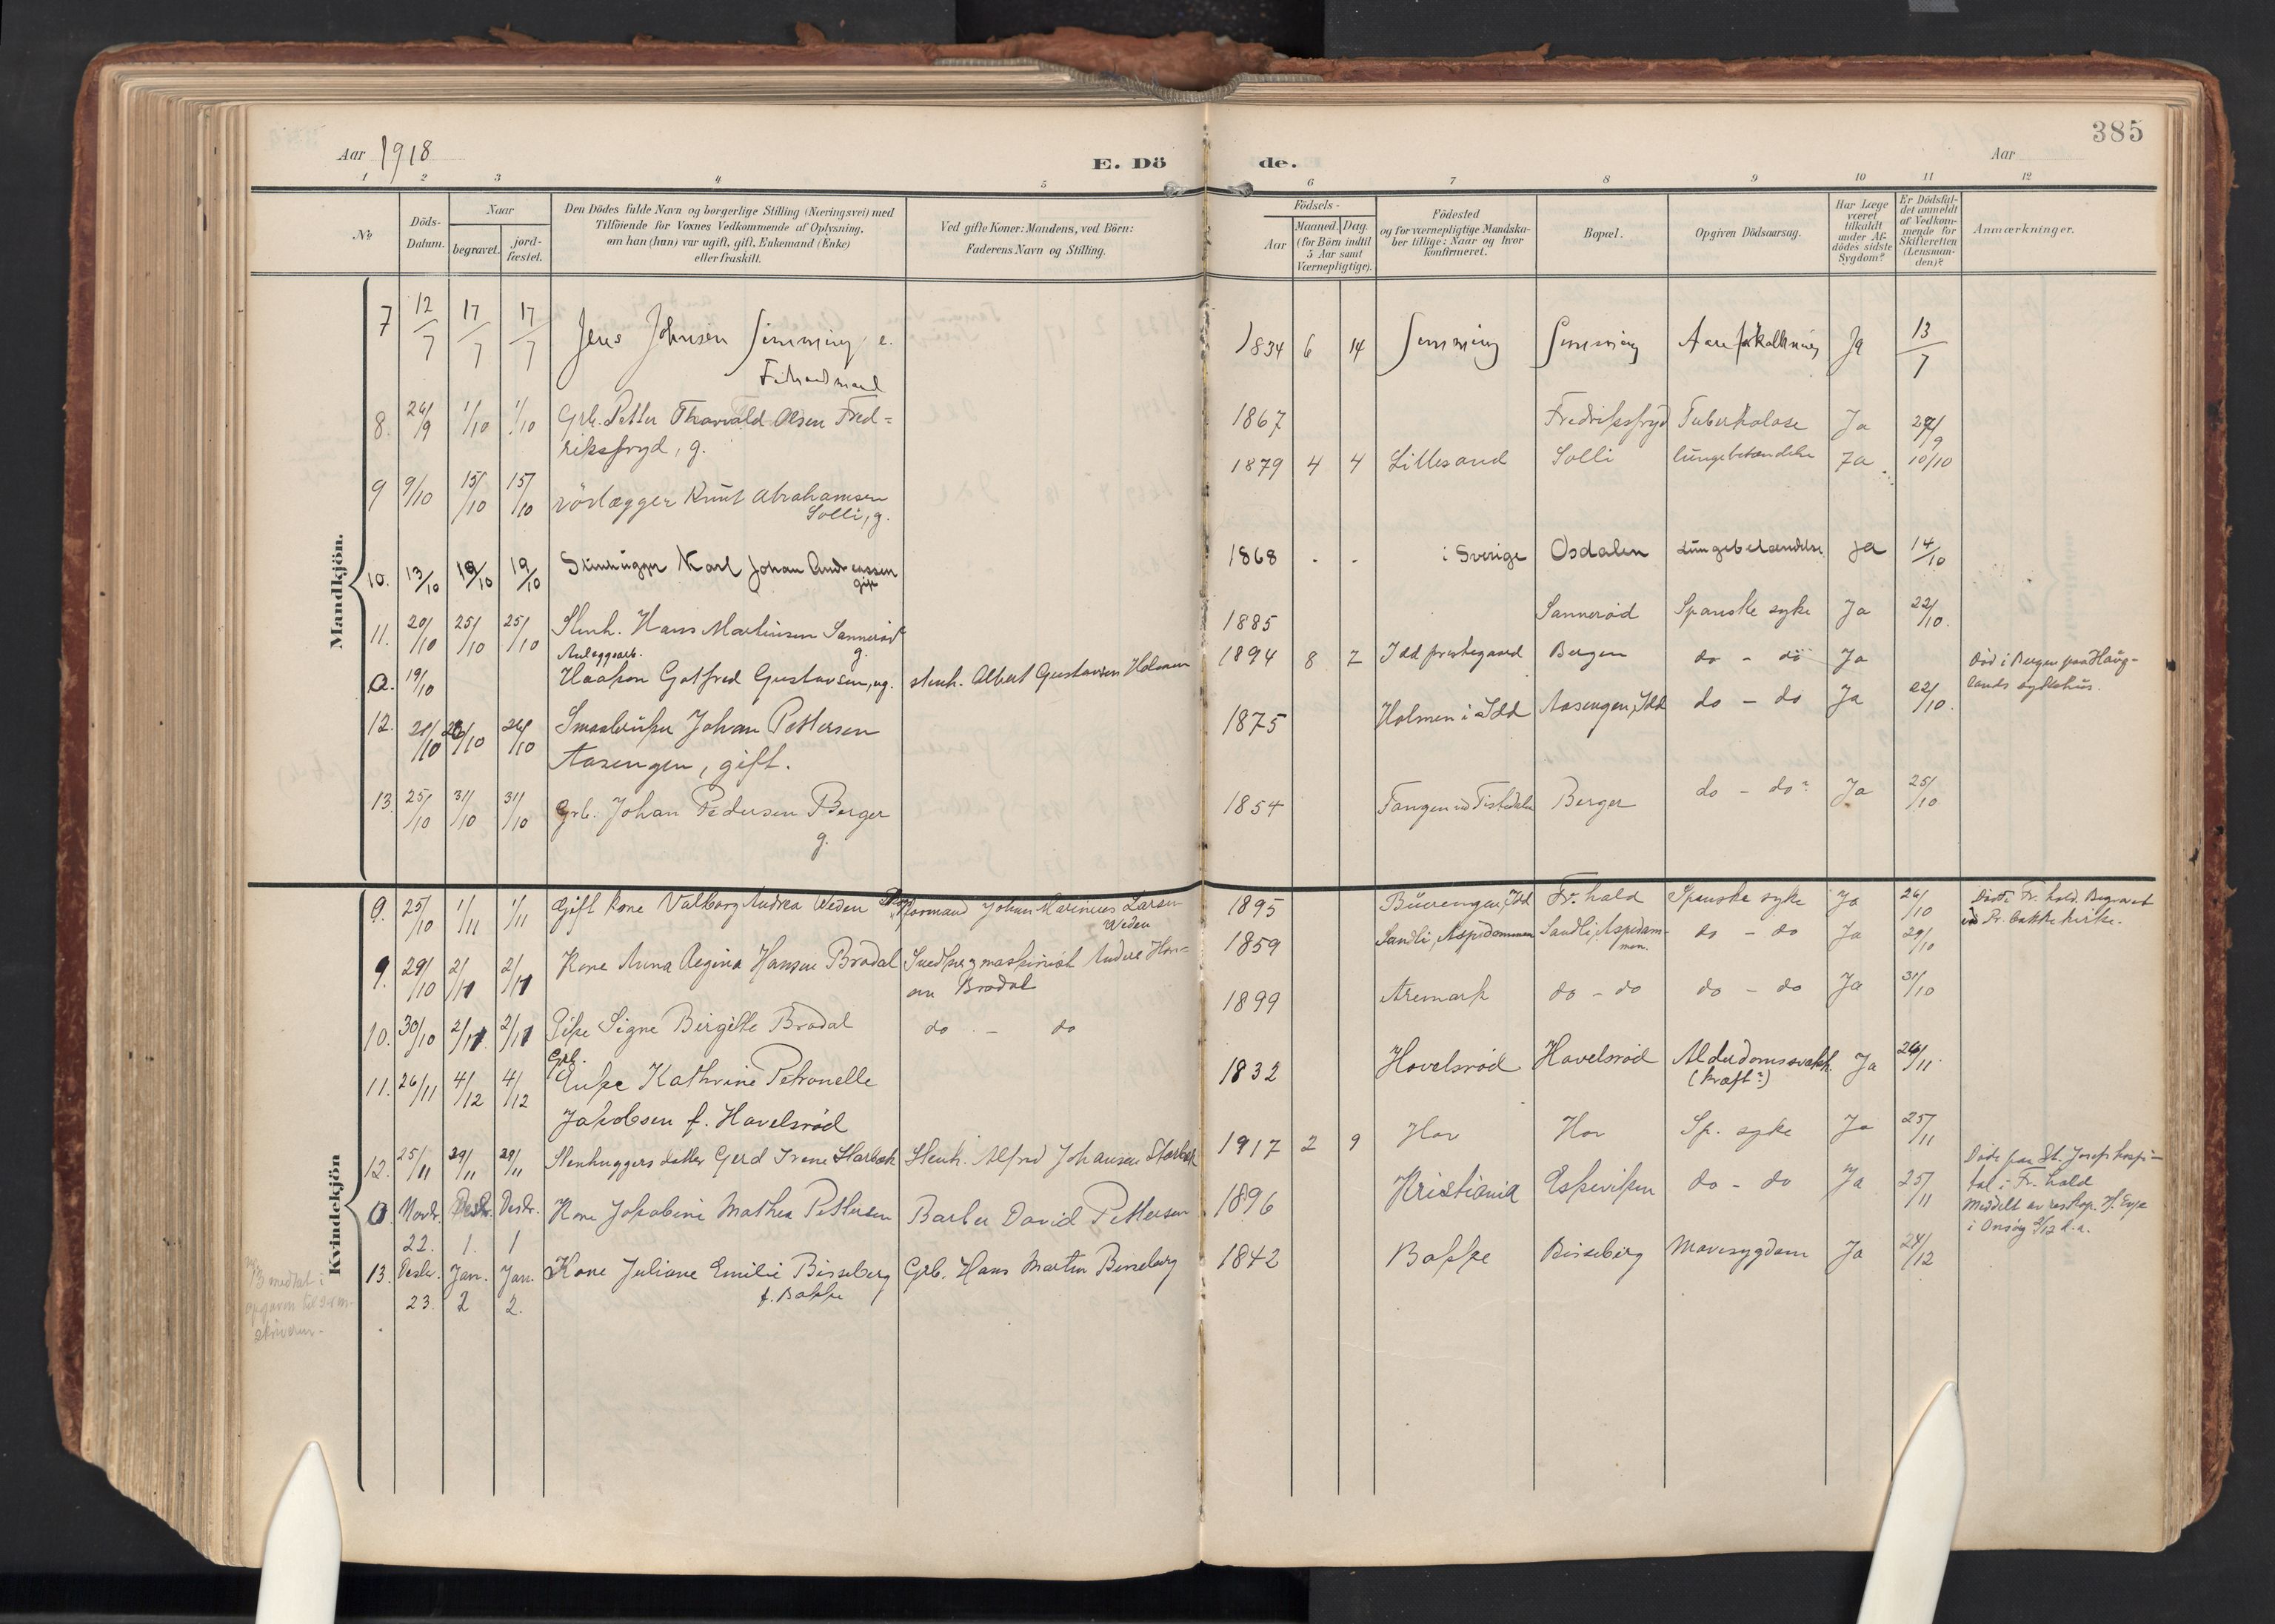 385
Aar 1918
E. Dö de.
Aar
1 2 3 4 5 6 7 8 9 10 11 12
No
Döds-
Datum.
Naar
begravet.
jord-
fæstet.
Den Dödes fulde Navn og borgerlige Stilling (Næringsvei) med
Tilföiende for Voxnes Vedkommende af Oplysning,
om han (hun) var ugift, gift, Enkemand (Enke)
eller fraskilt.
Ved gifte Koner: Mandens, ved Börn:
Faderens Navn og Stilling.
Födsels-
Aar
Maaned. Dag.
(for Börn indtil
5 Aar samt
Værnepligtige).
Födested
og for værnepligtige Mandska-
ber tillige: Naar og hvor
konfirmeret.
Bopæl.
Opgiven Dödsaarsag.
Har Læge
været
tilkaldt
under Af-
dödes sidste
Sygdom?
Er Dödsfal-
det anmeldt
af Vedkom-
mende for
Skifteretten
(Lensman-
den)?
Anmærkninger.
Mandkjön.
7 12/7 17/7 17/7 Jens Johnsen Simming 1834 6 14 Simming Simming Aareforkalkning Ja 13/7
8. 1/10 1/10 Grb. Petter Thorvald Olsen Fred-
riksfryd, g.
1867 Fredriksfryd Tuberkolose Ja
9 9/10 15/10 15/10 rörlægger Knut Abrahamsen
Solli, g.
1879 4 4 Lillesand Solli lungebetændelse Ja 10/10
10. 13/10 19/10 19/10 Stenhugger Karl Johan Andreassen
gift
1868 - - i Sverige Osdalen Lungebetændelse ja 14/10
11. 20/10 25/10 25/10 Stenh. Hans Martinsen Sannerød
g.
1885 Sannerød Spanske syke Ja 22/10.
Anlæggsarb.
0. 19/10 Haakon Gotfred Gustavsen, ug. stenh. Albert Gustavsen Holmen 1894 8 7 Idd prestegaard Bergen do - do Ja
Död i Bergen paa Haug-
lands sykehus.
12. 26/10 Smaabruker Johan Pettersen
Aasengen, gift.
1875 Holmen i Idd Aasengen, Idd do - do Ja 22/10.
13. 25/10 31/10 31/10 Grb. Johan Pedersen Berger
g.
1854 Tangen ved Tistedalen Berger do - do Ja 25/10
Kvindekjön
0. 25/10 1/11 1/11 Gift kone Valborg Andrea Weden formand Johan Marinius Larsen
Weden
1895 Fr.hald Spanske syke Ja 26/10
Fr. hald. Begravet
Fr. bakke kirke.
9. 29/10 2/11 2/11 Kone Anna Regina Hansen Brødal Smed og maskinist Andre Han-
sen Brødal
1859 Sandli, Aspedammen Sandli, Aspedam-
men.
do - do Ja 29/10
10. 30/10 2/11 2/11 Pike Signe Birgitte Brødal do - do 1899 Aremark do - do do - do Ja 31/10
Grb.
11. 26/11 4/12 4/12 Enke Kathrine Petronelle
Jakobsen f. Havelsrød
1832 Hovelsrød Havelsrød Alderdomssvakh.
(kræft?)
Ja 26/11.
12. 25/11 29/11 29/11 Stenhuggers datter Gerd Irene Storbæk Stenh. Alfred Johansen Storbæk 1917 2 9 Hov Hov Sp. syke Ja 25/11
0. Novbr. Desbr. Desbr. Kone Jakobine Mathea Pettersen Barber David Pettersen 1896 Kristiania Eskeviken do - do Ja 25/11
22. 1. 1
Døde paa St. Josefs hospi-
tal i Fr. hald
Meddelt av
i Onsøy 2/12 d.a.
13. Desbr. Jan. Jan. Kone Juliane Emilie Bisseberg Grb. Hans Martin Bisseberg 1842 Bakke Bisseberg Mavesygdom Ja 24/12
23. 2 2. f. Bakke